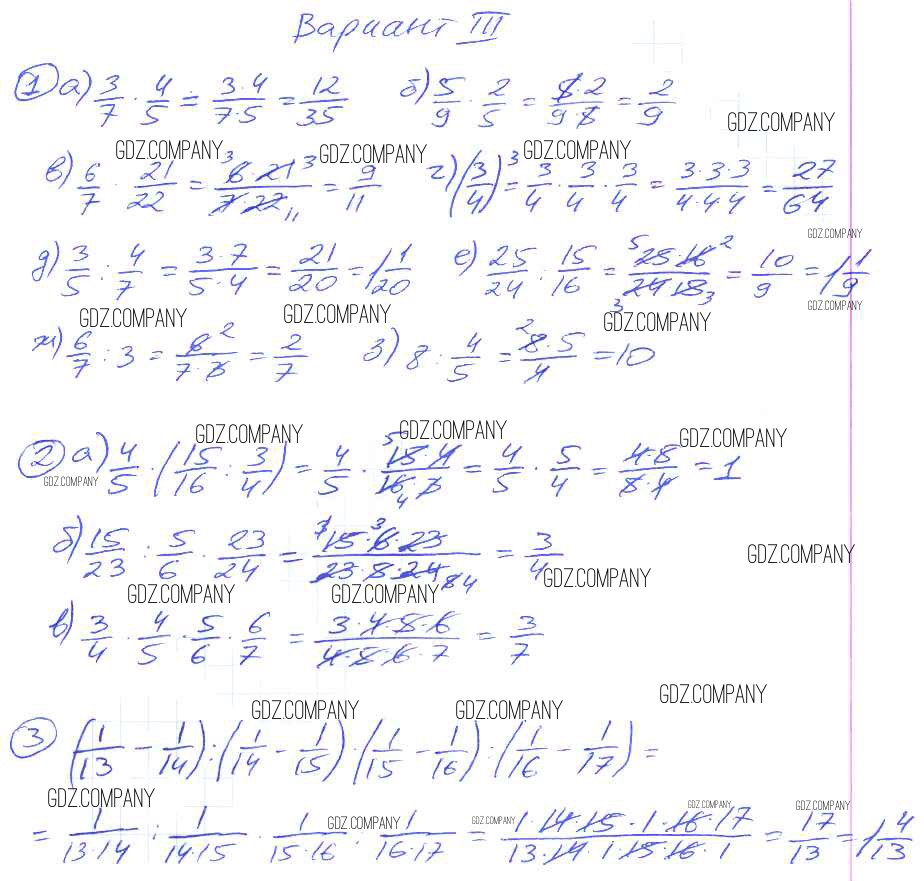 Вариант III
1 а) 3/7 · 4/5 = 3·4/7·5 = 12/35 б) 5/9 · 2/5 = 5·2/9·5 = 2/9
GDZ.COMPANY
GDZ.COMPANY GDZ.COMPANY GDZ.COMPANY
в) 6/7 · 21/22 = 6·21/7·22 = 9/11 г) (3/4)³ = 3/4 · 3/4 · 3/4 = 3·3·3/4·4·4 = 27/64
GDZ.COMPANY
д) 3/5 : 4/7 = 3·7/5·4 = 21/20 = 1 1/20 е) 25/24 : 15/16 = 25·16/24·15 = 10/9 = 1 1/9
GDZ.COMPANY
GDZ.COMPANY GDZ.COMPANY GDZ.COMPANY
ж) 6/7 : 3 = 6/7·3 = 2/7 з) 8 : 4/5 = 8·5/4 = 10
GDZ.COMPANY GDZ.COMPANY GDZ.COMPANY
2 а) 4/5 · (15/16 : 3/4) = 4/5 · 15·4/16·3 = 4/5 · 5/4 = 4·5/5·4 = 1
GDZ.COMPANY
б) 15/23 : 5/6 · 23/24 = 15·6·23/23·5·24 = 3/4
GDZ.COMPANY
GDZ.COMPANY
GDZ.COMPANY GDZ.COMPANY
в) 3/4 · 4/5 · 5/6 · 6/7 = 3·4·5·6/4·5·6·7 = 3/7
GDZ.COMPANY
GDZ.COMPANY GDZ.COMPANY
3 (1/13 − 1/14) : (1/14 − 1/15) · (1/15 − 1/16) : (1/16 − 1/17) =
GDZ.COMPANY
GDZ.COMPANY GDZ.COMPANY GDZ.COMPANY GDZ.COMPANY
= 1/13·14 : 1/14·15 · 1/15·16 : 1/16·17 = 1·14·15·1·16·17/13·14·1·15·16·1 = 17/13 = 1 4/13